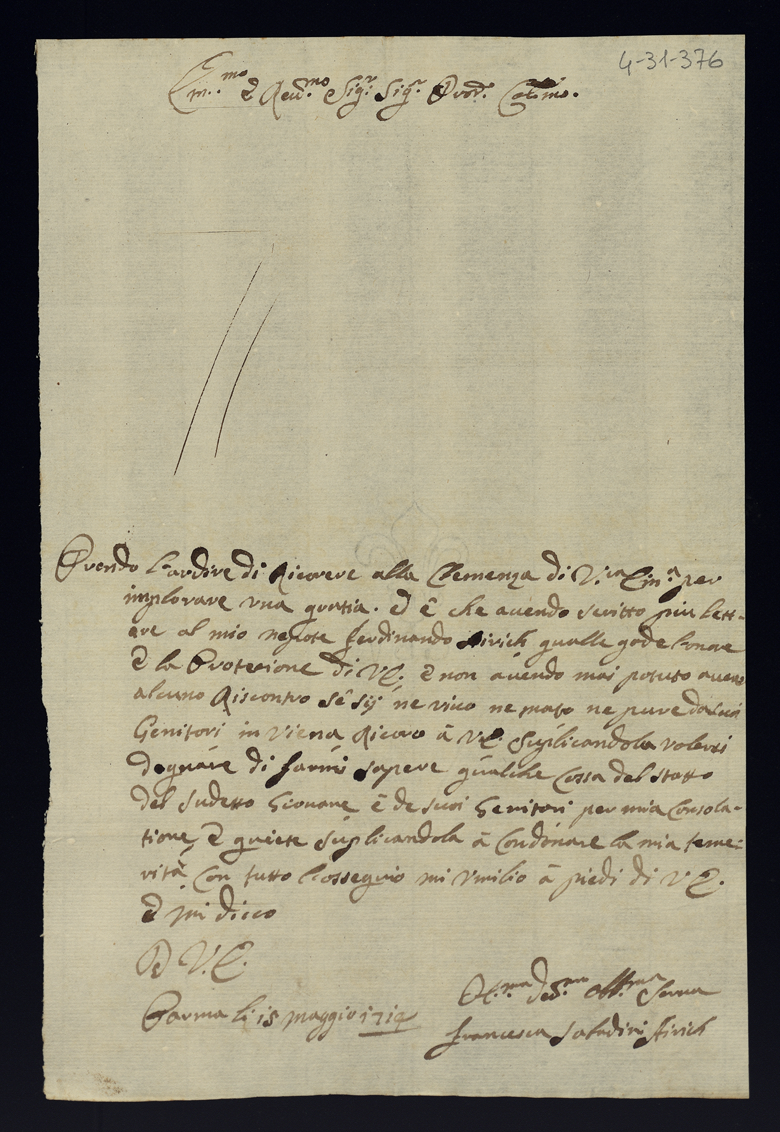 4-31-376
Em.mo e Reu.mo Sig.r Sig.r Pron.e Col.mo
Prendo l'ardire di Ricorere alla Clemenza di V.ra Em.a per
implorare vna gratia. Ed è che auendo scritto piu lett-
ere al mio nepote Ferdinando Airich qualle gode l'onore
e la Protetione di V.E. e non auendo mai potuto auere
alcuno Riscontro sè sij ne viuo ne morto ne pure da suoi
Genitori in Viena Ricoro à V.E. suplicandola volersi
degnare di farmi sapere qualche Cossa del statto
del sudetto Giouane è de suoi Genitori per mia Consola-
tione, e quiete suplicandola à Condonare la mia teme-
rità, Con tutto l'ossequio mi Vmilio à piedi di V.E.
e mi dico
D V.E.
Parma li 15 Maggio 1714
Vm.ma De.ma Obb.ma Serua
Francesca Saladini Airich